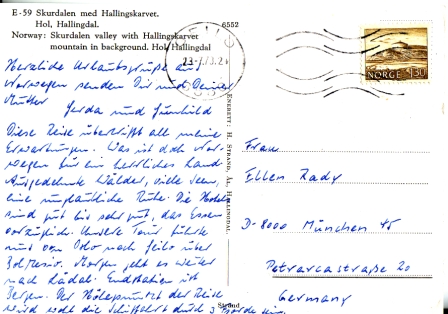 E-59 Skurdalen med Hallingskarvet.
Hol, Hallingdal.
Norway: Skurdalen valley with Hallingskarvet
mountain in background. Hol Hallingdal
6552
NORGE 130
Herzliche Urlaubsgrüße aus
Norwegen senden Dir und Deiner
Mutter
Gerda und Gunhild
Diese Reise übertrifft all meine
Erwartungen. Was ist doch Nor-
wegen für ein herrliches Land
Ausgedehnte Wälder, viele Seen,
eine unglaubliche Ruhe. Die Hotels
sind gut bis sehr gut, das Essen
vorzüglich. Unsere Tour führte
uns von Oslo nach Geilo über
Morgen geht es weiter
nach Endstation ist
Bergen. Der Höhepunkt der Reise
wird wohl die Schiffahrt durch 3 Fjorde sein.
ENERETT: H. STRAND, ÅL, HALLINGDAL
Strand
Frau
Ellen Rady
D-8000 München 45
Petrarcastraße 20
Germany